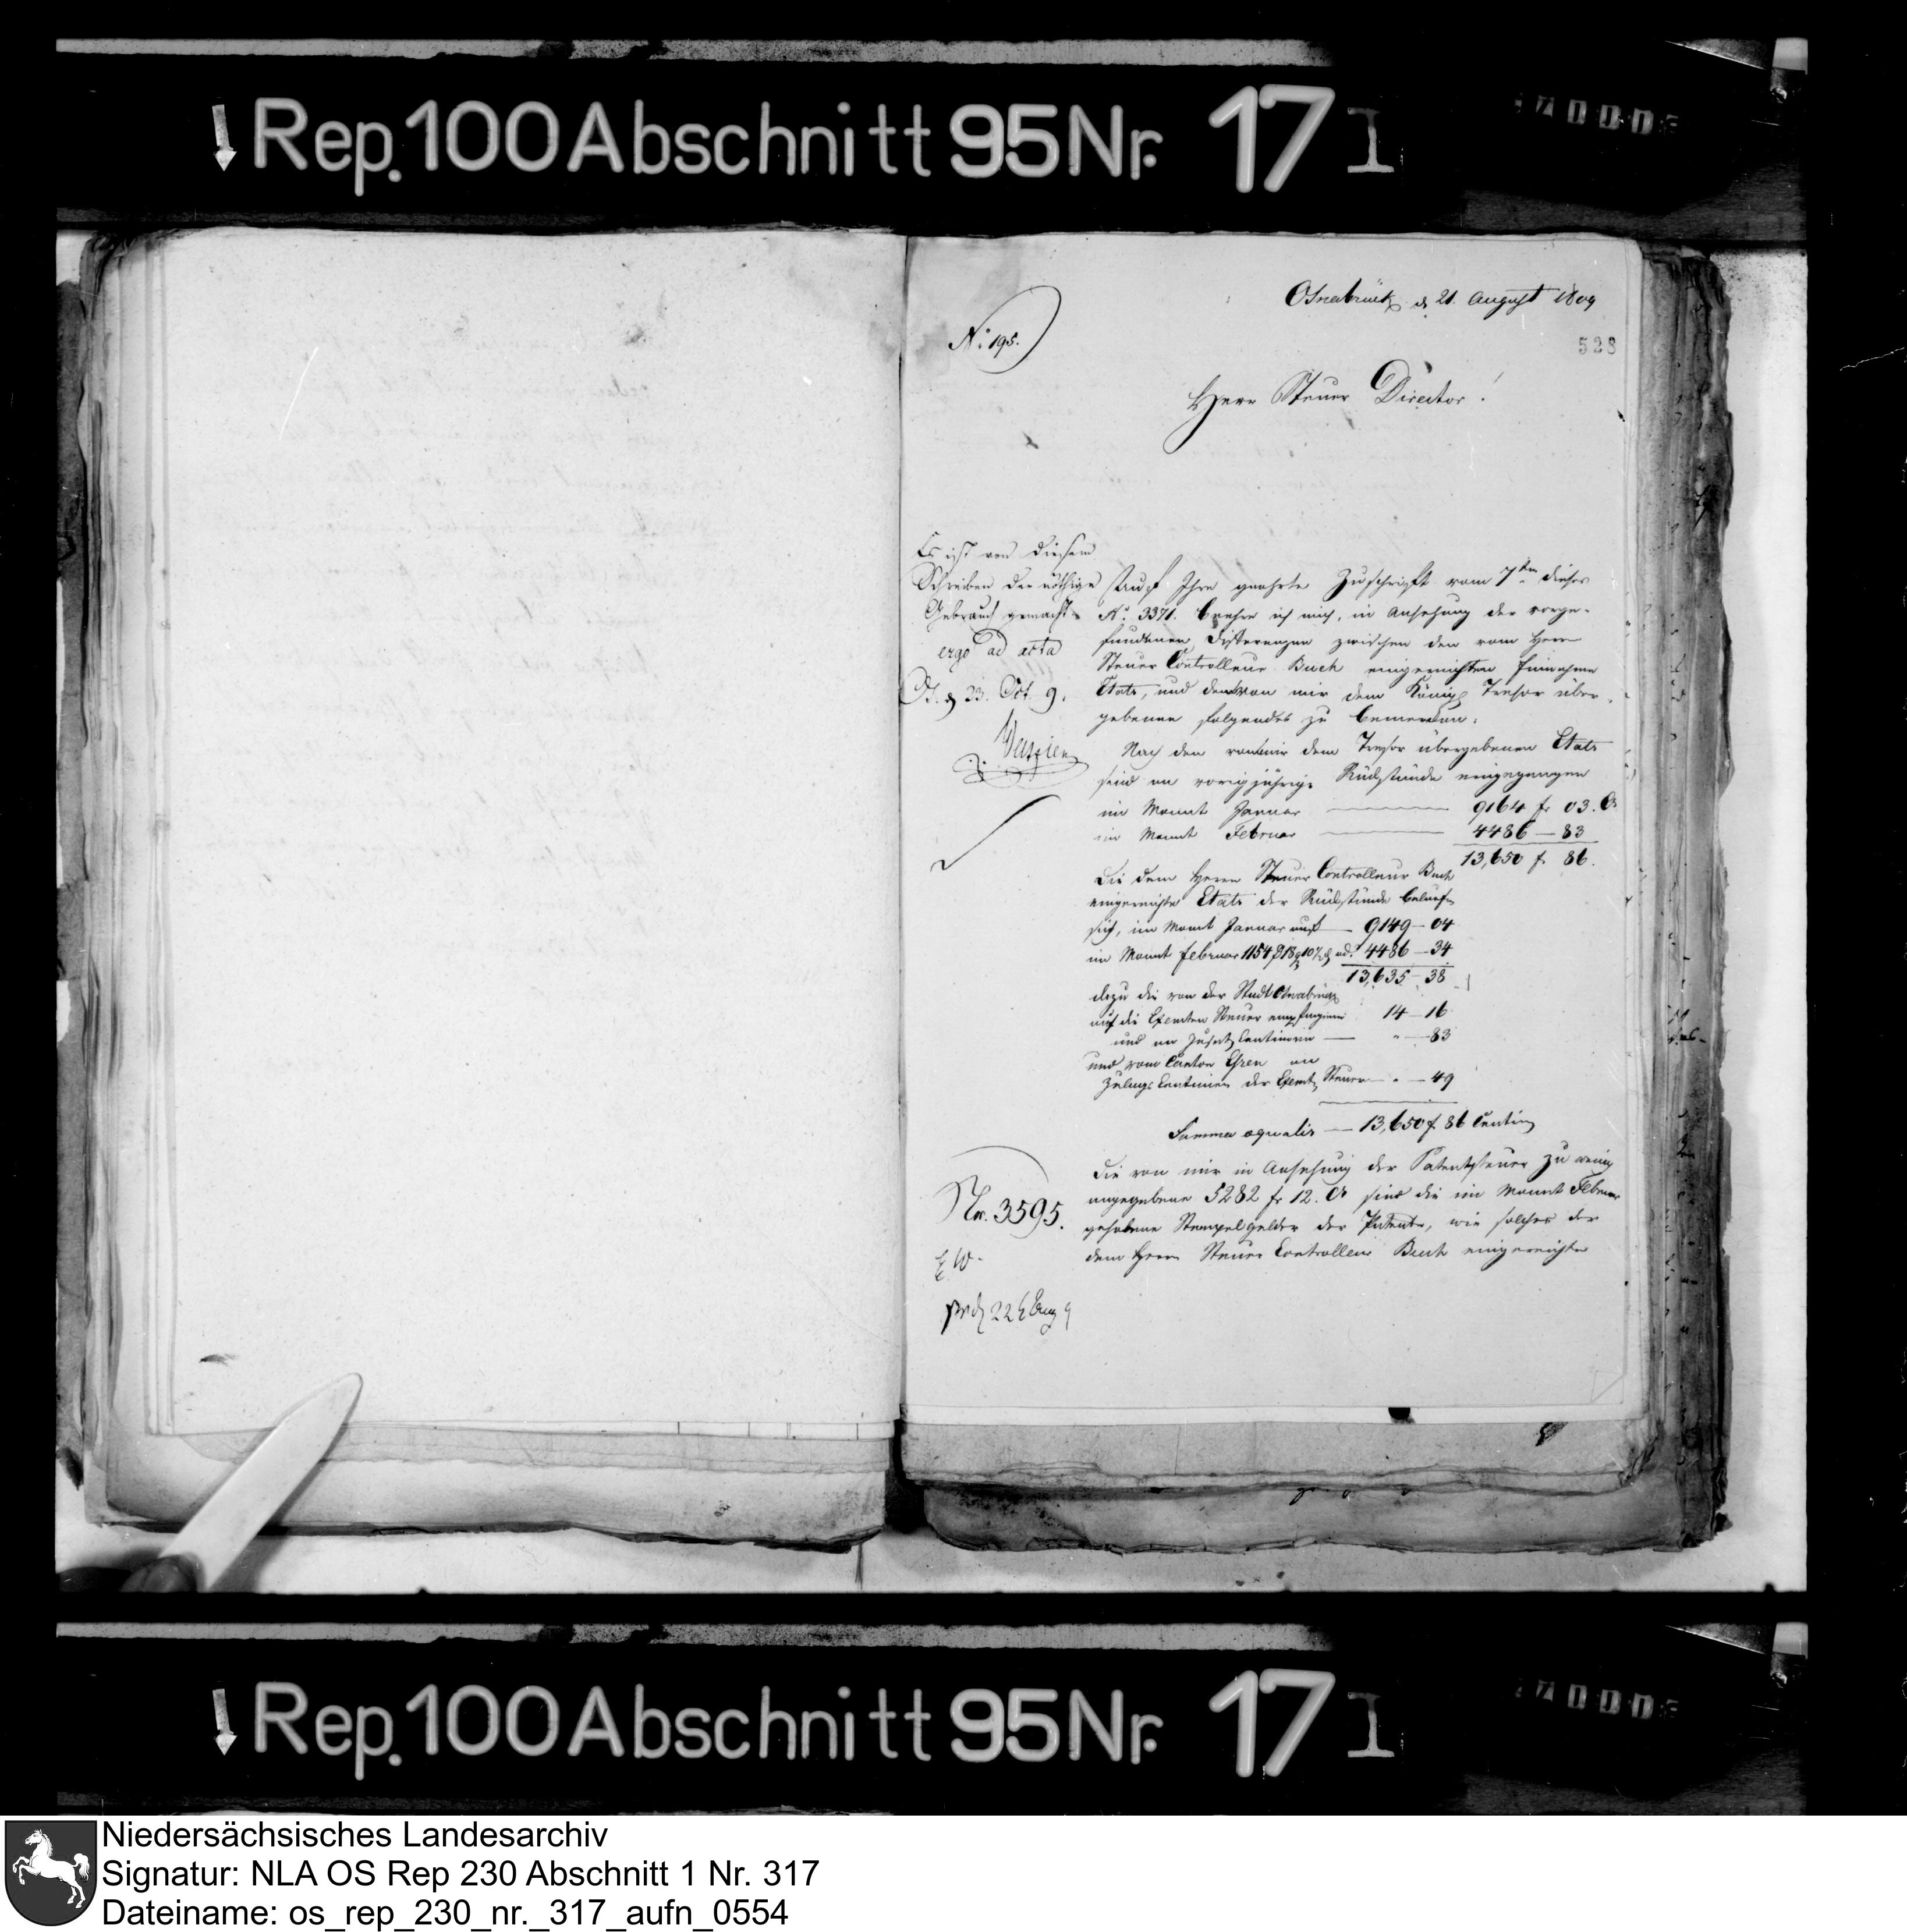 Rep. 100 Abschnitt 95 Nr. 17 I
Osnabrück d 21. August 1809
N: 195.
528
Herr Steuer Director!
Es ist von diesem
Schreiben der nöthige
Gebrauch gemacht
ergo ad acta
O. d 23. Oct. 9.
Auf Ihre geehrte Zuschrift vom 7ten dieses
No. 3371. beehre ich mich, in Ansehung der vorge-
fundenen Differenzen zwischen den vom Herrn
Steuer Controlleur Buch eingereichten Einnahme
Etats, und den von mir dem Königl Tresor über-
gebenen folgendes zu bemerken:
Nach den von mir dem Tresor übergebenen Etats
sind an vorigjährige Rückstände eingegangen
im Monat Januar — 9164 fr 03. Cs
im Monat Februar — 4486 — 83
13,650 f. 86.
Die dem Herrn Steuer Controlleur Buch
eingereichte Etats der Rückstände belaufen
sich, im Monat Januar auf — 9149 — 04
im Monat Februar 1154 18 10 4486 — 34
13,635 — 38
dazu die von der Stadt Osnabrück
auf die Exemten Steuer empfangene 14 — 16
und an Zusatz Centimen — " — 83
und vom Canton Essen an
Zulags Centimen der Exemt Steuer — " — 49
Summa aequalis — 13,650 f. 86 Centim
Die von mir in Ansehung der Patentsteuer zu wenig
angegebene 5282 fr 12. Cs sind die im Monat Februar
gehobene Stempelgelder der Patente, wie solches der
dem Herrn Steuer Controlleur Buch eingereichte
Nr. 3595.
22 Aug 9
Rep. 100 Abschnitt 95 Nr. 17 I
Niedersächsisches Landesarchiv
Signatur: NLA OS Rep 230 Abschnitt 1 Nr. 317
Dateiname: os_rep_230_nr._317_aufn_0554